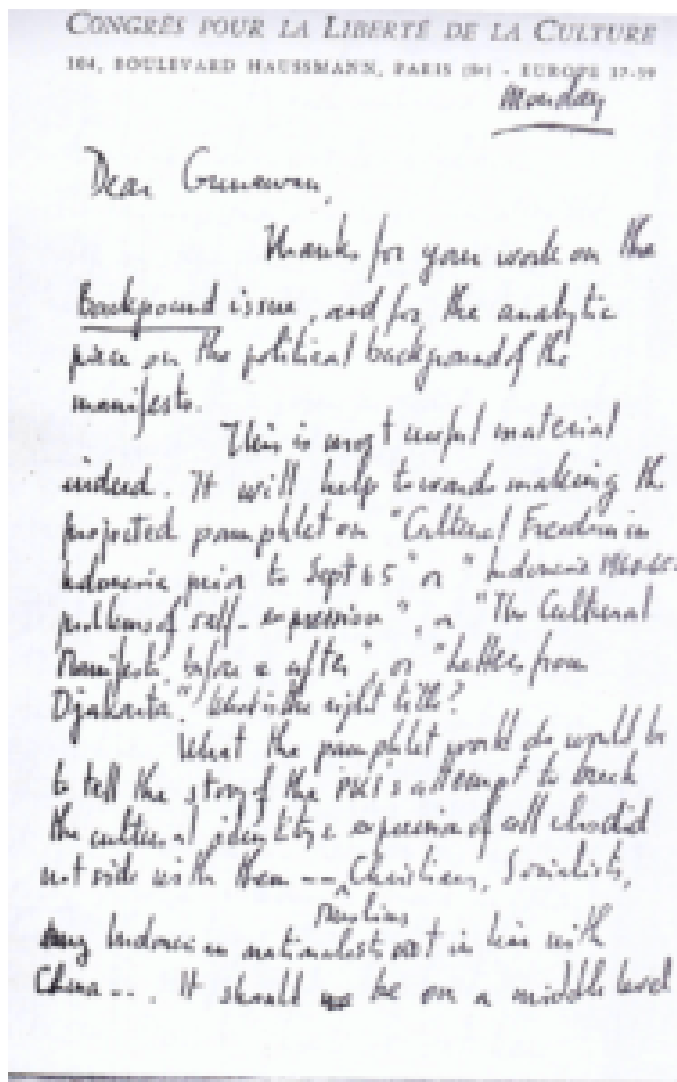 CONGRÈS POUR LA LIBERTÉ DE LA CULTURE
104, BOULEVARD HAUSSMANN, PARIS (8e) - EUROPE 27-59
Monday
Dear Gunawan,
Thanks for your work on the
Background issue, and for the analytic
piece on the political background of the
manifesto.
This is most useful material
indeed. It will help towards making the
projected pamphlet on "Cultural Freedom in
Indonesia prior to Sept 65" or "Indonesia 1960-65:
problems of self-expression", or "The Cultural
Manifesto before & after", or "Letter from
Djakarta". What is the right title?
What the pamphlet would do would be
to tell the story of the PKI's attempt to break
the cultural identity & expression of all who did
not side with them -- Christians, Socialists,
Muslims
any Indonesian nationalists not in line with
China -- . It should be on a middle level